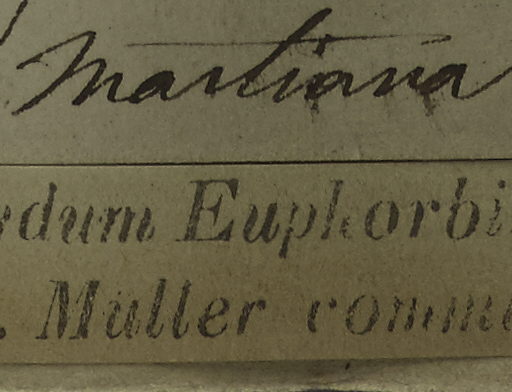 Martiana
rdum Euphorbi
. Müller comm